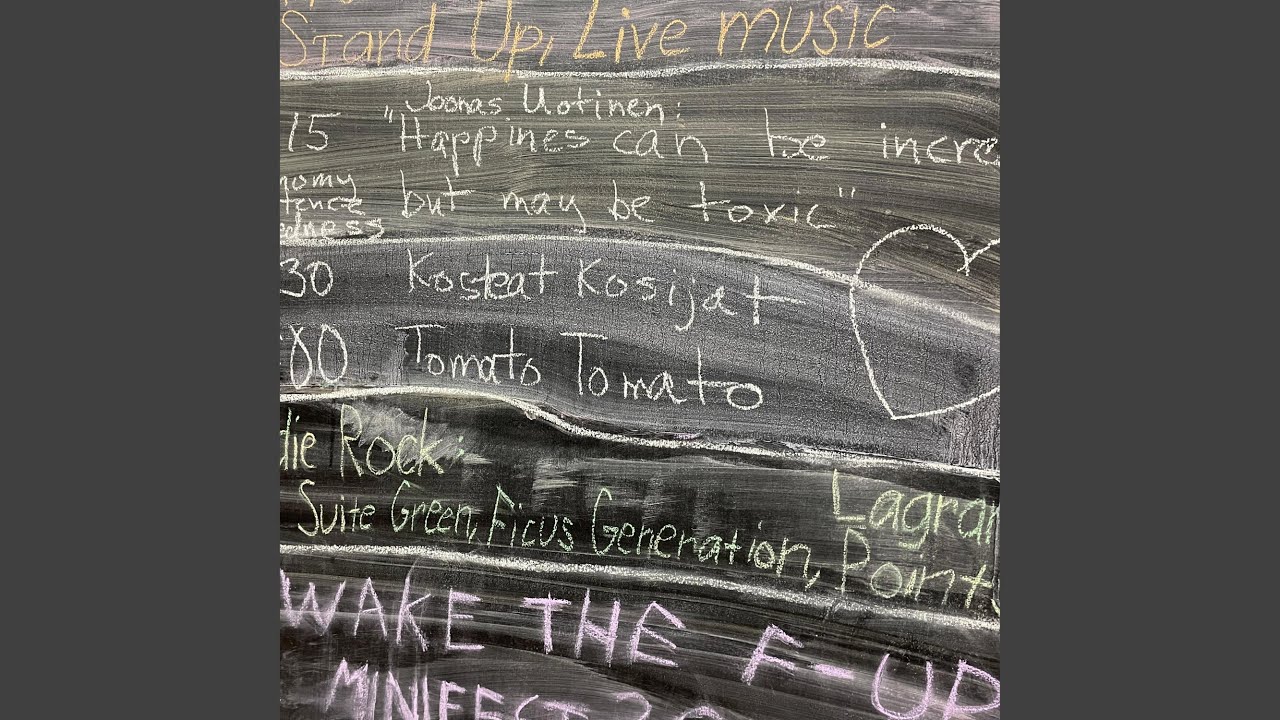 Stand Up, Live music
Joonas Uotinen:
15 "Happines can be incre
nomy
tence but may be toxic"
edness
30 Kosteat Kosijat
00 Tomato Tomato
die Rock:
Lagran
Suite Green, Ficus Generation, Points
WAKE THE F-UP
MINIFEST